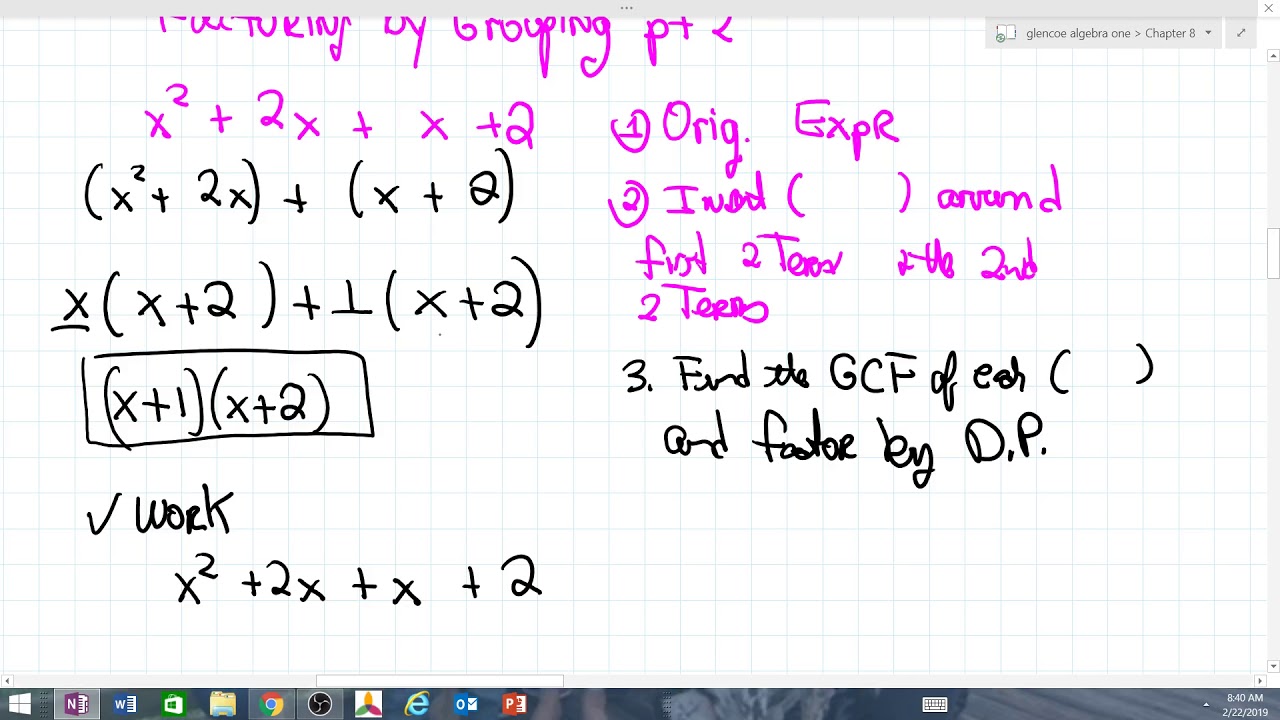 Factoring by Grouping pt 2
glencoe algebra one > Chapter 8
x² + 2x + x + 2
(x² + 2x) + (x + 2)
x(x+2) + 1(x+2)
(x+1)(x+2)
✓ Work
x² + 2x + x + 2
① Orig. ExpR
② Insert ( ) around
first 2 Terms + the 2nd
2 Terms
3. Find the GCF of each ( )
and factor by D.P.
8:40 AM
2/22/2019